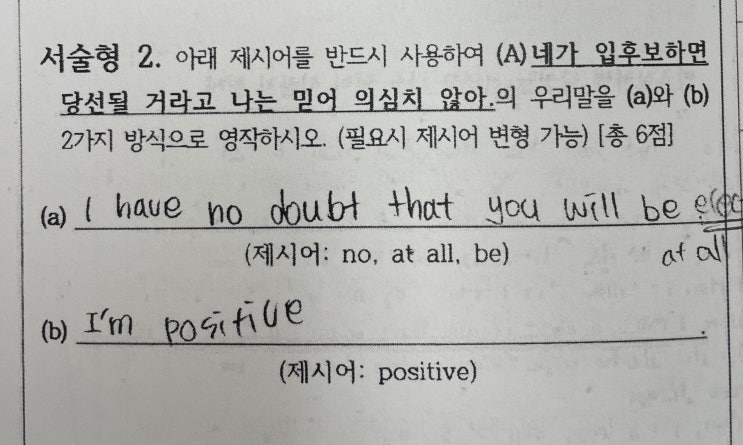 서술형 2. 아래 제시어를 반드시 사용하여 (A)네가 입후보하면
당선될 거라고 나는 믿어 의심치 않아.의 우리말을 (a)와 (b)
2가지 방식으로 영작하시오. (필요시 제시어 변형 가능) [총 6점]
(a) I have no doubt that you will be
(제시어: no, at all, be) at all
(b) I'm positive .
(제시어: positive)